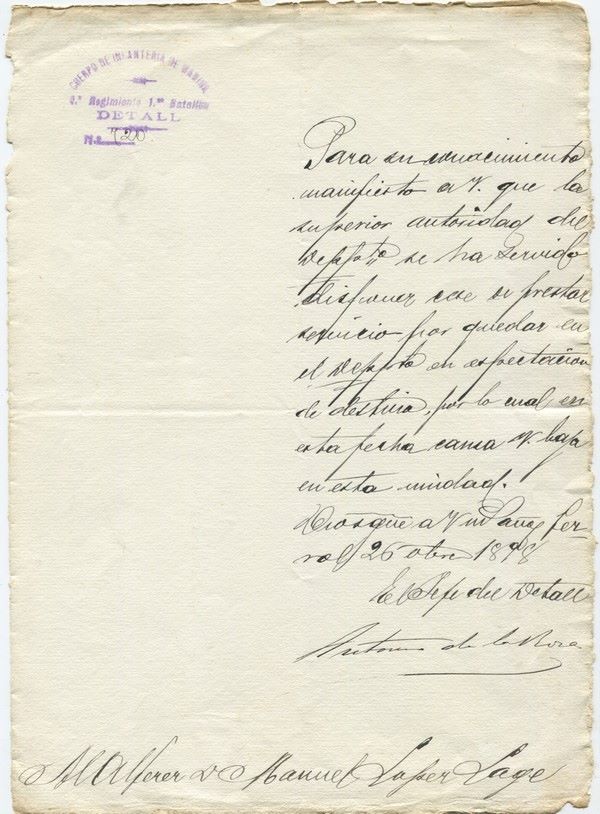 CUERPO DE INFANTERIA DE MARINA
1.er Batallón
DETALL
N.º 720
Para su conocimiento
manifiesto a V. que la
superior autoridad del
Deppto se ha servido
disponer cese de prestar
servicio por quedar en
el Deppto en espectacion
de destino, por lo cual en
esta fecha causa V. baja
en esta unidad.
Dios gue a V m años Fer-
rol 26 obre 1898
El Jefe del Detall
Antonio de la Rosa
Al Alferez D Manuel Lopez Lage